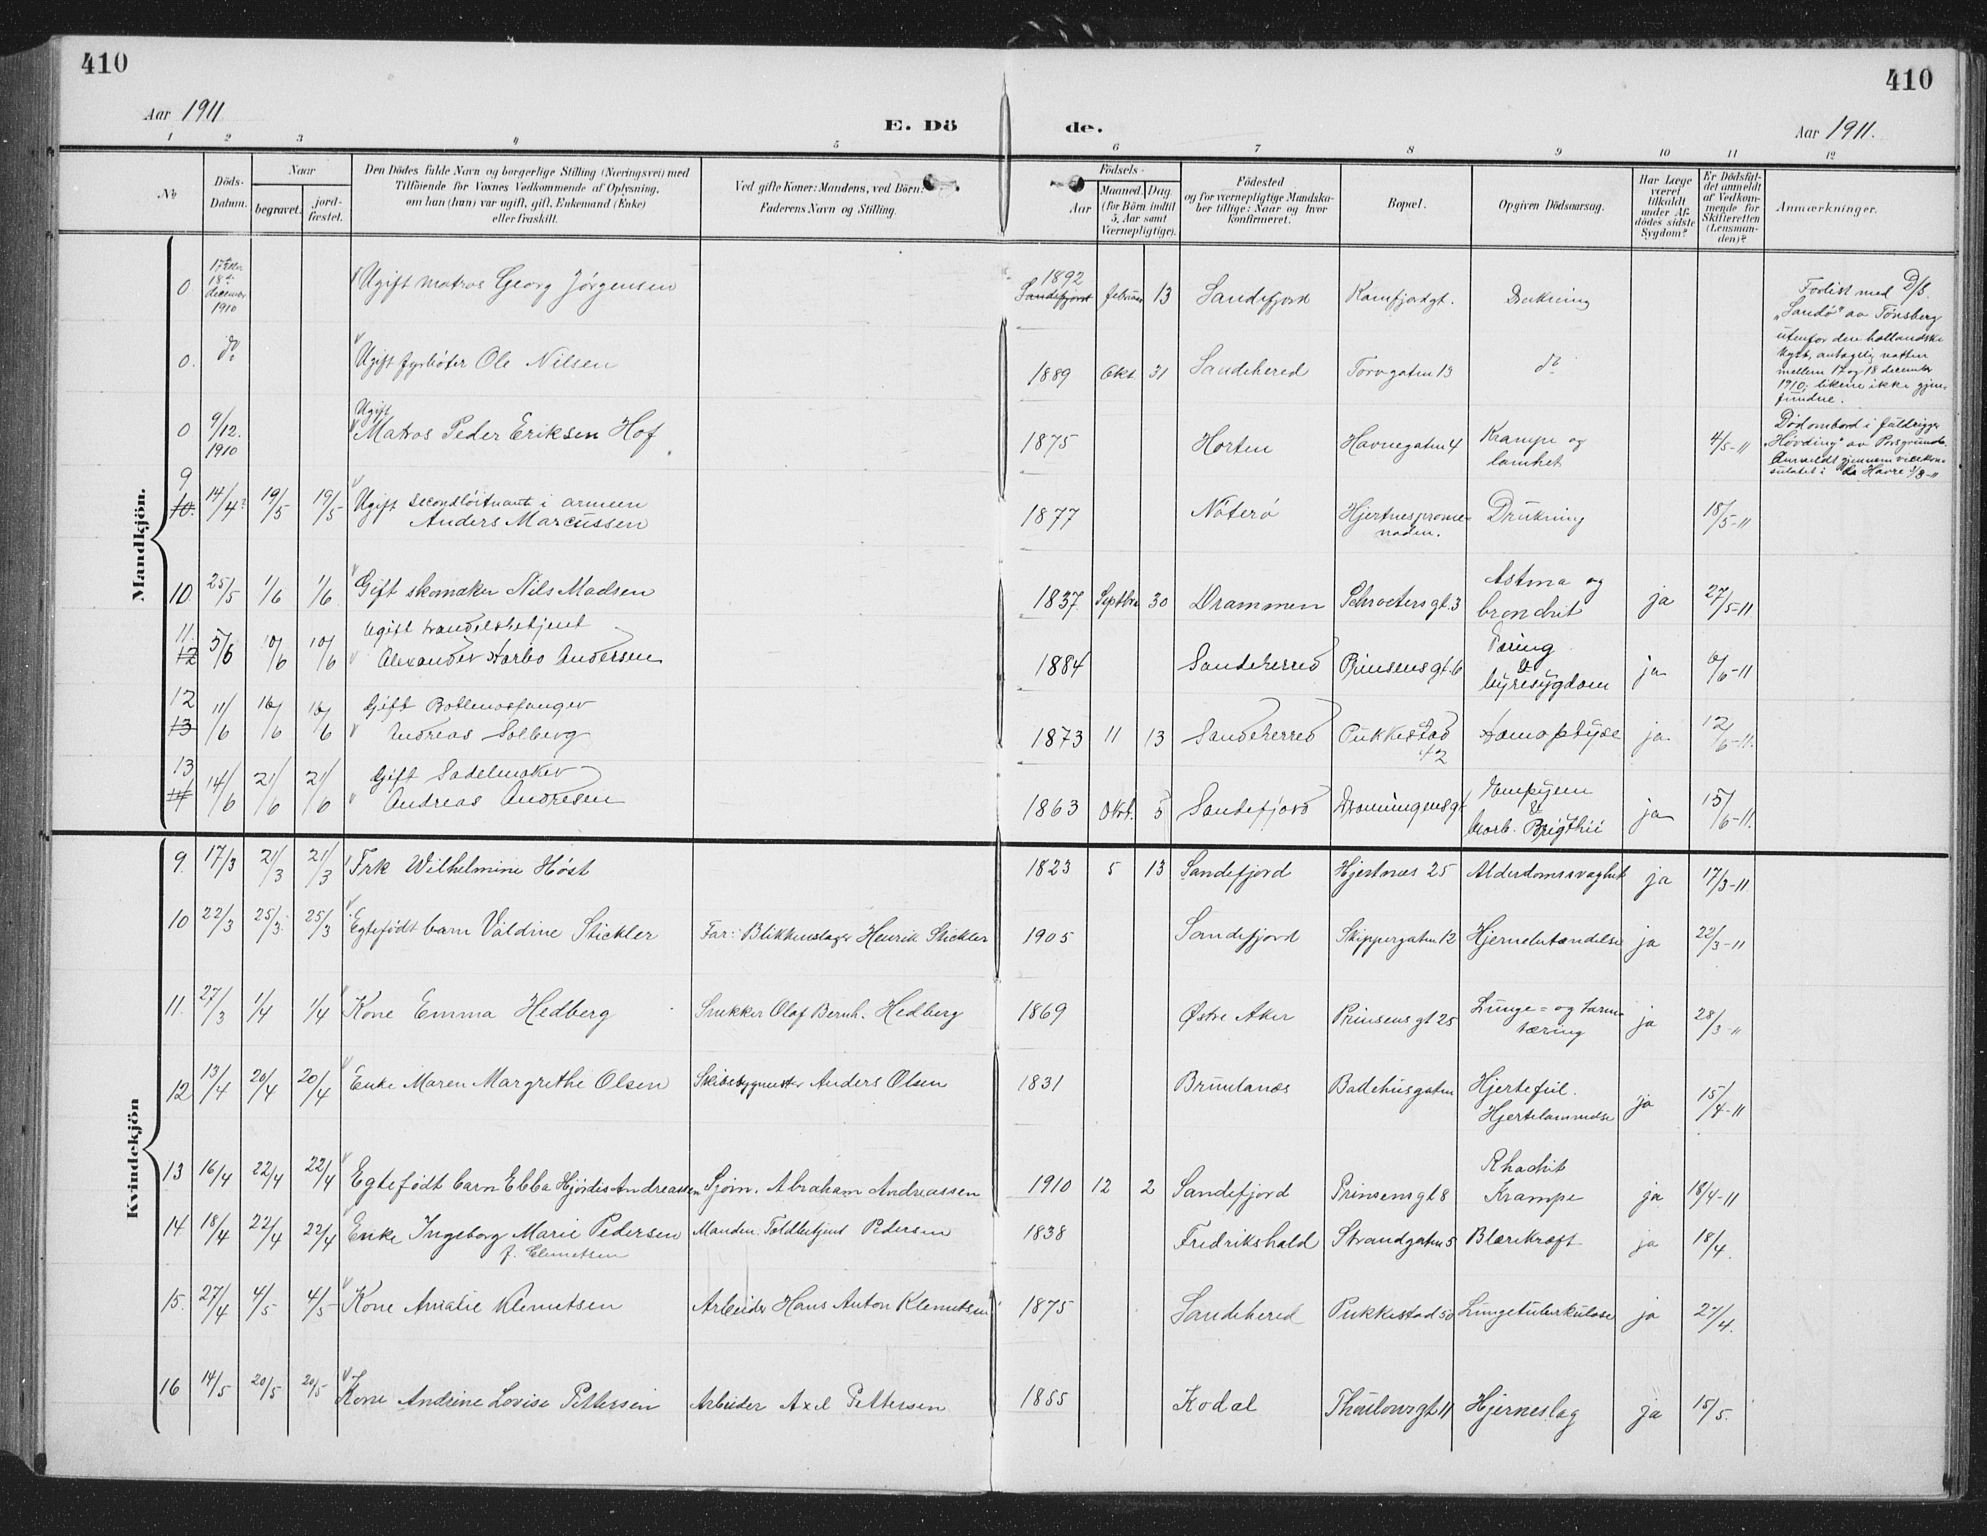 410
410
Aar 1911
E. Dö de.
Aar 1911.
1 2 3 4 5 6 7 8 9 10 11 12
No
Döds-Datum.
Naar
begravet.
jord-fæstet.
Den Dödes fulde Navn og borgerlige Stilling (Næringsvei) med
Tilföiende for Voxnes Vedkommende af Oplysning,
om han (hun) var ugift, gift, Enkemand (Enke)
eller fraskilt.
Ved gifte Koner: Mandens, ved Börn:
Faderens Navn og Stilling.
Födsels-
Aar
Maaned. Dag.
(for Börn indtil
5 Aar samt
Værnepligtige).
Födested
og for værnepligtige Mandska-
ber tillige: Naar og hvor
konfirmeret.
Bopæl.
Opgiven Dödsaarsag.
Har Læge
været
tilkaldt
under Af-
dödes sidste
Sygdom?
Er Dödsfal-
det anmeldt
af Vedkom-
mende for
Skifteretten
(Lensman-
den)?
Anmærkninger.
Mandkjön.
0 17 eller 18de december 1910 Ugift matros Georg Jørgensen 1892 Sandefjord februar 13 Sandefjord Kamfjordgt. Drukning
Forlist med D/S. "Sandø" av Tønsberg utenfor den hollandske kyst, antagelig natten mellem 17 og 18 december 1910; likene ikke gjenfundne.
0. do Ugift fyrbøter Ole Nilsen 1889 Okt. 31 Sandehered Torvgaten 13 do
0 9/12. 1910 Ugift Matros Peder Eriksen Hof 1875 Horten Havnegaten 4 Krampe og lamhet 4/5-11
Død ombord i fuldrigger "Høvding" av Porsgrund. Anmeldt gjennem vicekonsulatet i La Havre 1/3-11
9 10. 14/4? 19/5 19/5 Ugift secondløitnant i armeen Anders Marcussen 1877 Nøterø Hjertnespromenaden. Drukning 18/5-11
10 25/5 1/6 1/6 Gift skomaker Nils Madsen 1837 Septbr 30 Drammen Schrøtersgt. 3 Astma og bronchit ja 27/5-11
11. 12 5/6 10/6 10/6 Ugift handelsbetjent Alexander Aarbo Andersen 1884 Sandeherred Prinsensgt. 6 Tæring & nyresygdom ja 6/6-11
12 13 11/6 16/6 16/6 Gift Bottlenosfanger Andreas Solberg 1873 11 13 Sandeherred Pukkestad 42 Hæmoptyse ja 12/6-11.
13 14 14/6 21/6 21/6 Gift Sadelmaker Andreas Andresen 1863 Okt. 5 Sandefjord Dronningensgt Empyem & Morb. Brigthii ja 15/6-11.
Kvindekjön
9. 17/3 21/3 21/3 Frk Wilhelmine Høst 1823 5 13 Sandefjord Hjertnes 25 Alderdomssvaghet ja 17/3-11
10 22/3 25/3 25/3 Egtefødt barn Valdine Stickler Far: Blikkenslager Henrik Stickler 1905 Sandefjord Skippergaten 12 Hjernebetændelse ja 22/3-11
11. 27/3 1/4 1/4 Kone Emma Hedberg Snekker Olaf Bernh. Hedberg 1869 Østre Aker Prinsensgt 25 Lunge- og tarmtæring ja 28/3-"
12 13/4 20/4 20/4 Enke Maren Margrethe Olsen Skibsbygmester Anders Olsen 1831 Brunlanæs Badehusgaten Hjertefeil. Hjertelammelse ja 15/4-11
13 16/4 22/4 22/4 Egtefødt barn Ebba Hjørdis Andreassen Sjøm. Abraham Andreassen 1910 12 2 Sandefjord Prinsensgt 8 Rhachit Krampe ja 18/4-11
14 18/4 22/4 22/4 Enke Ingeborg Marie Pedersen f. Clemetsen Manden. Toldbetjent Pedersen 1838 Fredrikshald Strandgaten 5 Blærekræft ja 18/4.
15. 27/4 4/5 4/5 Kone Amalie Klemetsen Arbeider Hans Anton Klemetsen 1875 Sandehered Pukkestad 50 Lungetuberkulose ja 27/4.
16 14/5 20/5 20/5 Kone Andrine Lovise Pettersen Arbeider Axel Pettersen 1855 Kodal Thaulowsgt 11 Hjerneslag ja 15/5.